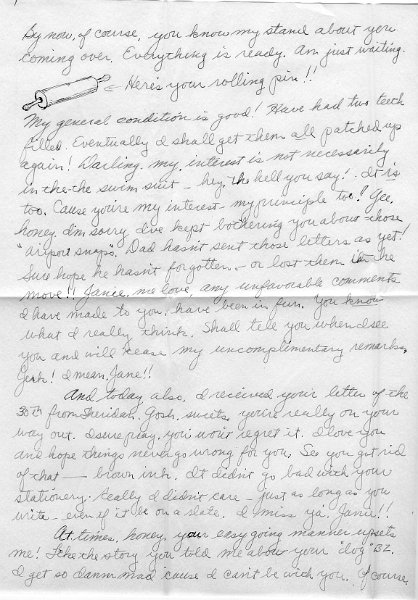 By now, of course, you know my stand about you
coming over. Everything is ready. Am just waiting.
← Here's your rolling pin!!
My general condition is good! Have had two teeth
filled. Eventually I shall get them all patched up
again! Darling, my interest is not necessarily
in the-the swim suit - hey, the hell you say! It is
too. Cause you're my interest - my principle too! Gee,
honey, I'm sorry I've kept bothering you about those
"airport snaps". Dad hasn't sent those letters as yet!
Sure hope he hasn't forgotten - or lost them in the
move!! Janie, me love, any unfavorable comments
I have made to you, have been in fun. You know
what I really think. Shall tell you when I see
you and will cease my uncomplimentary remarks,
Gosh! I mean, Jane!!
And today, also, I received your letter of the
30th from Sheridan. Gosh, sweets, you're really on your
way out. I sure pray, you won't regret it. I love you
and hope things never go wrong for you. See you got rid
of that — brown ink. It didn't go bad with your
stationery. Really I didn't care - just as long as you
write - even if it be on a slate. I miss ya' Janie!!
At times, honey, your easy going manner upsets
me! Like the story you told me about your dog
I get so damn mad 'cause I can't be with you. Of course,